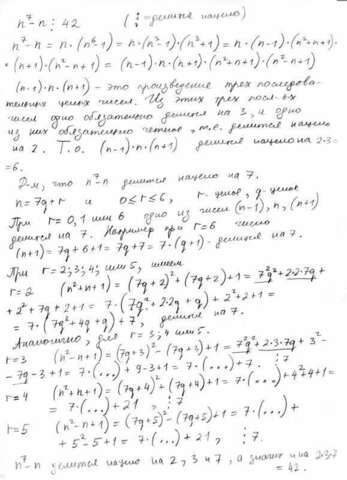 n⁷-n ⋮ 42 (⋮ = делится нацело)
n⁷-n = n·(n⁶-1) = n·(n³-1)·(n³+1) = n·(n-1)·(n²+n+1)·
·(n+1)·(n²-n+1) = (n-1)·n·(n+1)·(n²+n+1)·(n²-n+1)
(n-1)·n·(n+1) - это произведение трех последова-
тельных целых чисел. Из этих трех посл-ых
чисел одно обязательно делится на 3, и одно
из них обязательно четное, т.е. делится нацело
на 2. Т.о. (n-1)·n·(n+1) делится нацело на 2·3=
=6.
Д-м, что n⁷-n делится нацело на 7.
n=7q+r и 0≤r≤6, r-целое, q-целое
При r=0,1 или 6 одно из чисел (n-1), n, (n+1)
делится на 7. Например при r=6 число
(n+1) = 7q+6+1 = 7q+7 = 7·(q+1) - делится на 7.
При r=2; 3; 4; или 5, имеем
r=2 (n²+n+1) = (7q+2)²+(7q+2)+1 = 7²q²+2·2·7q+
+2²+7q+2+1 = 7·(7q²+2·2q+q)+2²+2+1 =
= 7·(7q²+4q+q)+7, делится на 7.
Аналогично, для r=3; 4 или 5.
r=3 (n²-n+1) = (7q+3)²-(7q+3)+1 = 7²q²+2·3·7q+3²-
-7q-3+1 = 7·(...)+9-3+1 = 7·(...)+7 ⋮7
r=4 (n²+n+1) = (7q+4)²+(7q+4)+1 = 7·(...)+4²+4+1=
= 7·(...)+21, ⋮7
r=5 (n²-n+1) = (7q+5)²-(7q+5)+1 = 7·(...)+
+5²-5+1 = 7·(...)+21, ⋮7.
n⁷-n делится нацело на 2, 3 и 7, а значит и на 2·3·7
= 42.